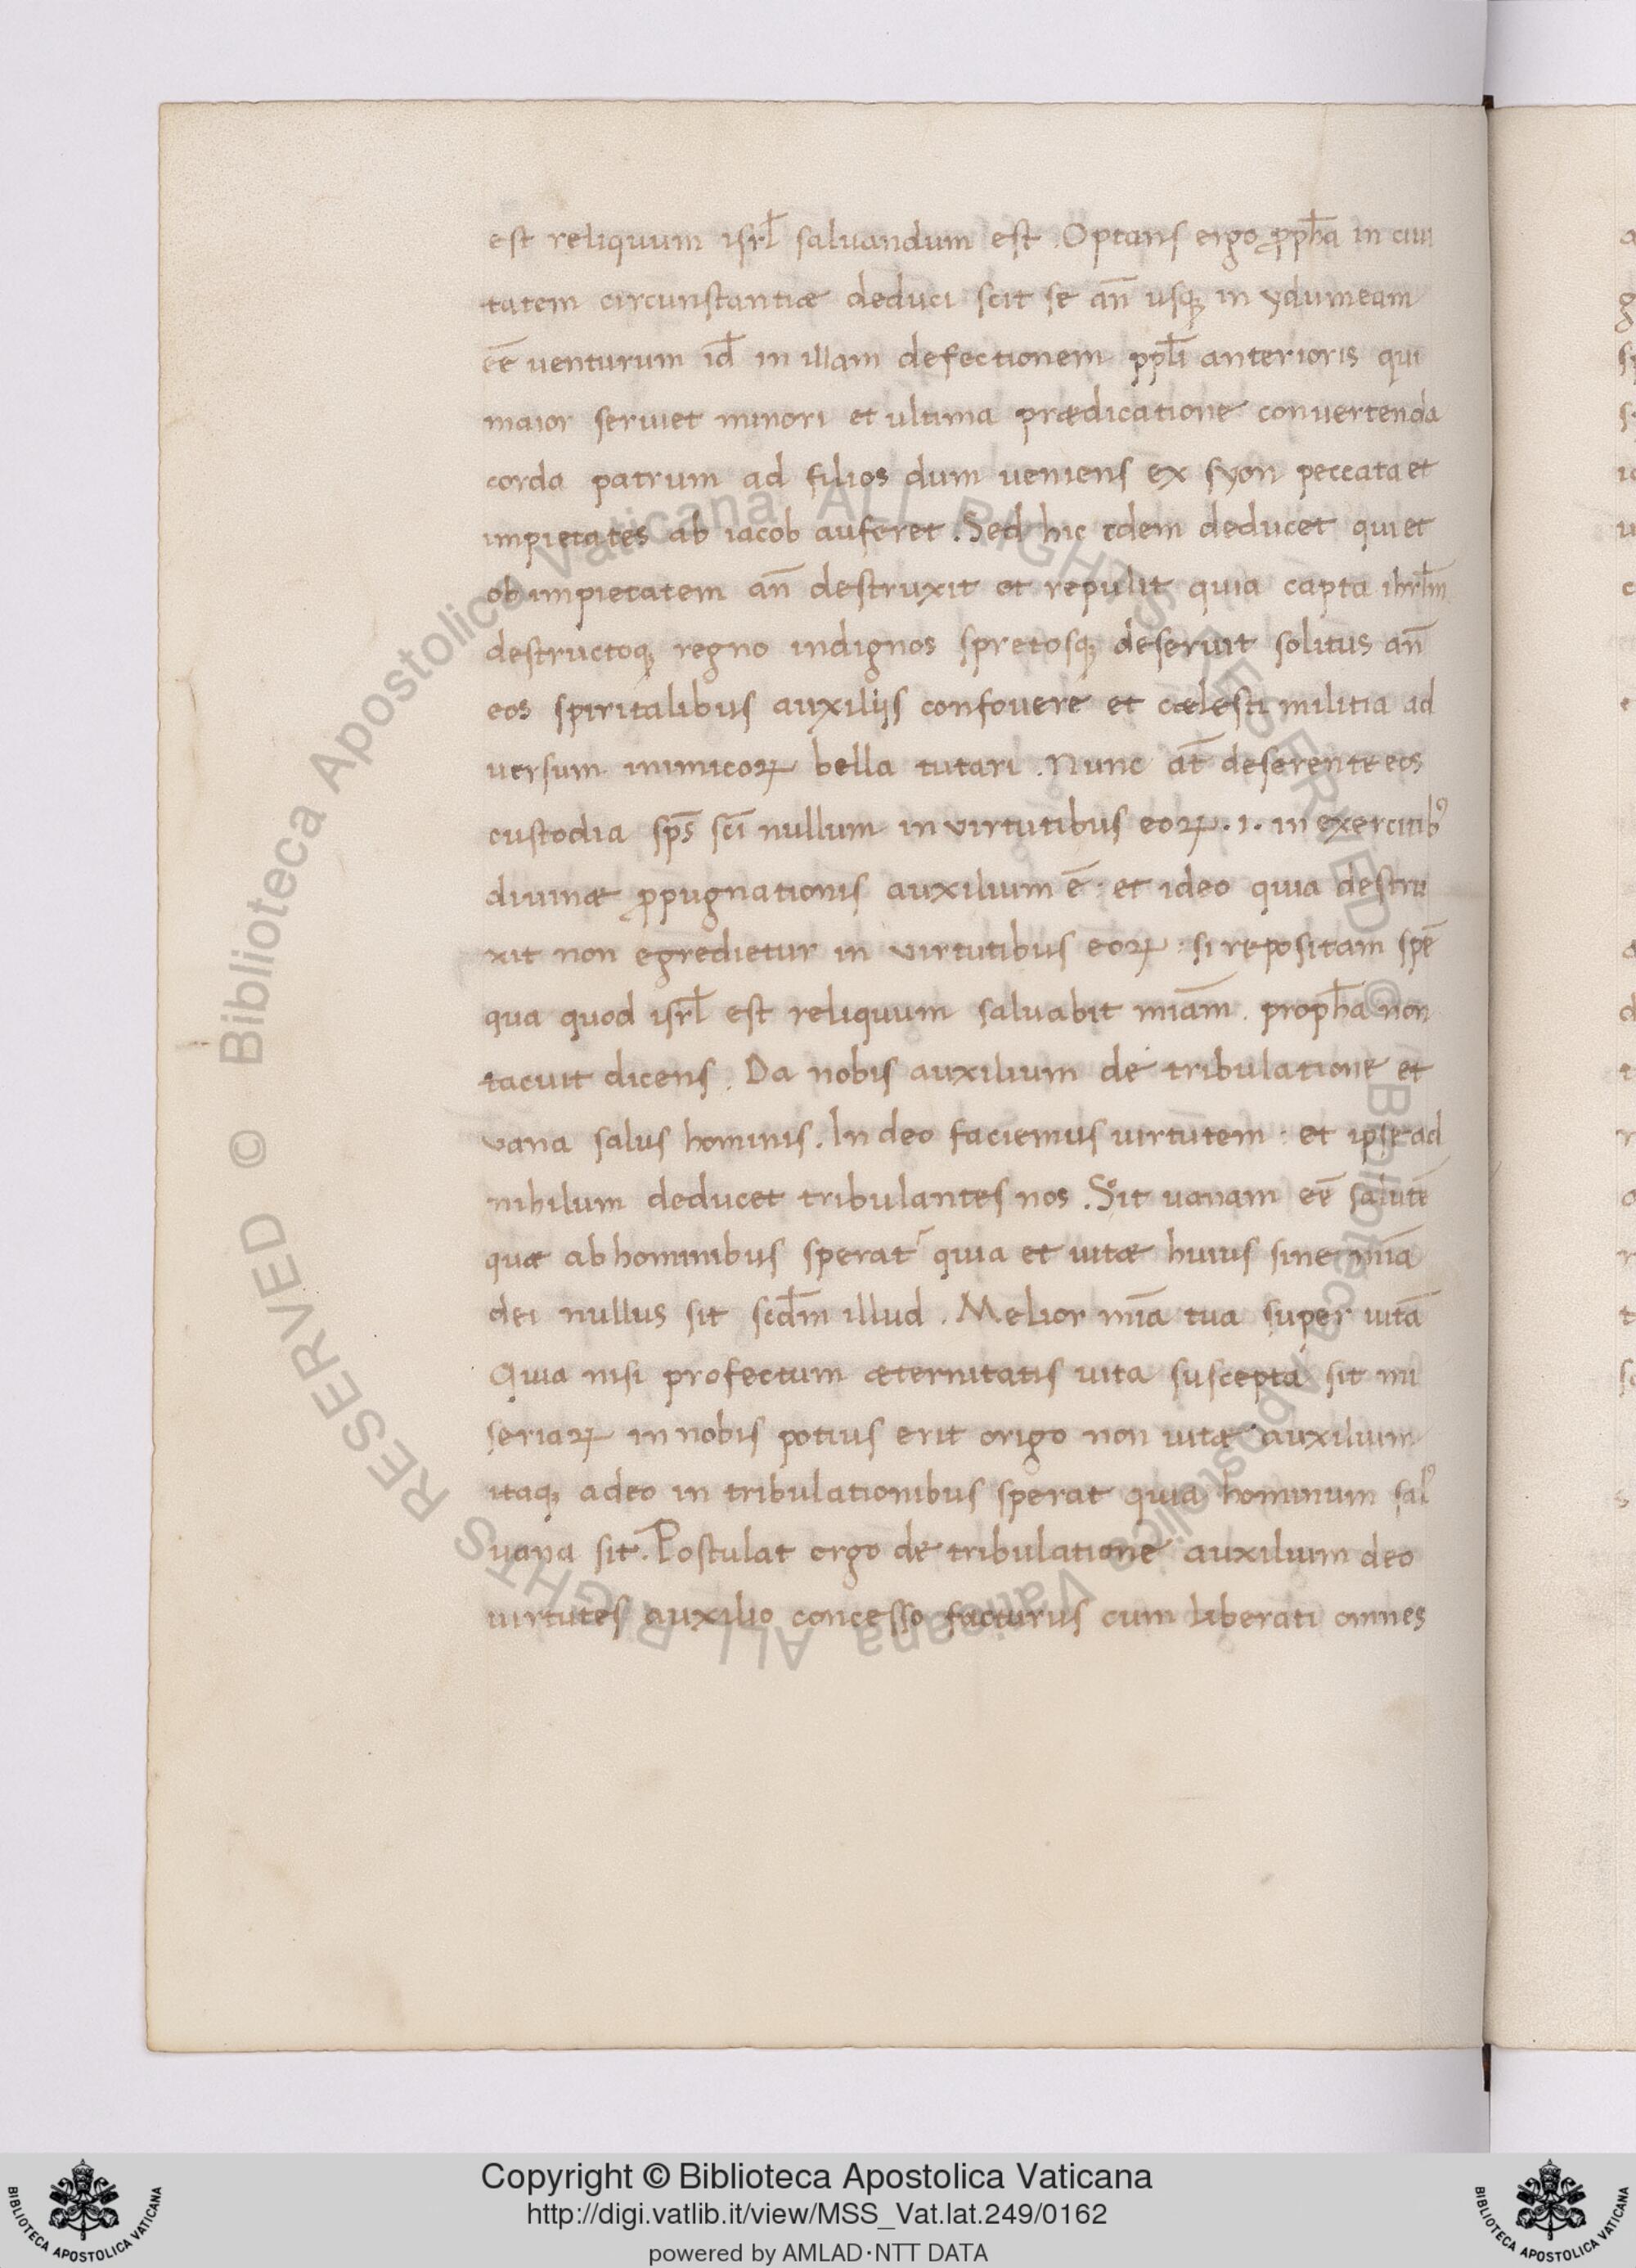 est reliquum isrl̄ saluandum est . Optans ergo ꝓph̄a in ciui
tatem circunstantiæ deduci scit se an̄ usq; in ydumeam
eē uenturum id̄ in illam defectionem ppl̄i anterioris qui
maior seruiet minori et ultima prædicatione conuertenda
corda patrum ad filios dum ueniens ex syon peccata et
impietates ab iacob auferet . Sed hic idem deducet qui et
ob impietatem an̄ destruxit et repulit quia capta ihrl̄m
destructoq; regno indignos spretosq; deseruit solitus an̄
eos spiritalibus auxilijs confouere et cælesti militia ad
uersum inimicoꝝ bella tutari . Nunc at̄ deserente eos
custodia sp̄s sc̄i nullum in virtutibus eoꝝ . i . in exercitibꝰ
diuinæ ꝓpugnationis auxilium ē : et ideo quia destru
xit non egredietur in virtutibus eoꝝ : si repositam spē
qua quod isrl̄ est reliquum saluabit miam̄ . proph̄a non
tacuit dicens . Da nobis auxilium de tribulatione et
vana salus hominis . In deo faciemus uirtutem : et ipse ad
nihilum deducet tribulantes nos . Sͦit uanam eē salutē
quæ ab hominibus sperat᷑ quia et uitæ huius sine mīa
dei nullus sit scd̄m illud . Melior mīa tua super uitā
Quia nisi profectum æternitatis uita suscepta sit mi
seriaꝝ in nobis potius erit origo non uitæ auxilium
itaq; adeo in tribulationibus sperat quia hominum salꝰ
uana sit . Postulat ergo de tribulatione auxilium deo
uirtutes auxilio concesso facturus cum liberati omnes
Copyright © Biblioteca Apostolica Vaticana
http://digi.vatlib.it/view/MSS_Vat.lat.249/0162
powered by AMLAD·NTT DATA
BIBLIOTECA APOSTOLICA VATICANA
BIBLIOTECA APOSTOLICA VATICANA
© Biblioteca Apostolica Vaticana ALL RIGHTS RESERVED © Biblioteca Apostolica Vaticana ALL RIGHTS RESERVED